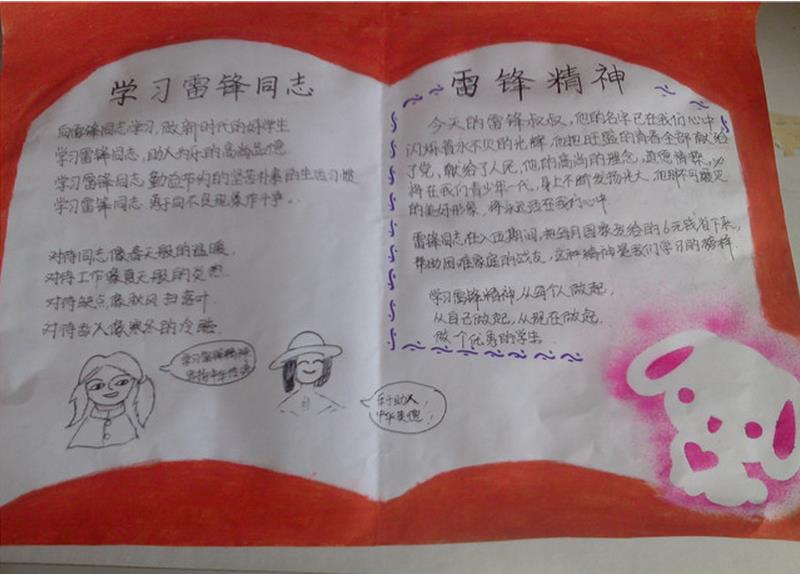 学习雷锋同志
向雷锋同志学习,做新时代的好学生
学习雷锋同志,助人为乐的高尚品德
学习雷锋同志,勤俭节约的坚苦朴素的生活习惯
学习雷锋同志,勇于向不良现象作斗争。
对待同志像春天般的温暖.
对待工作像夏天般的炎热.
对待缺点像秋风扫落叶.
对待敌人像寒冬的冷酷.
学习雷锋精神
乐于助人,
中华美德!
雷锋精神
今天的雷锋叔叔,他的名字已在我们心中
闪烁着永不灭的光辉,他把旺盛的青春全部献给
了党,献给了人民,他的高尚的理念,道德情操,必
将在我们青少年一代,身上不断发扬光大,他那不可磨灭
的美好形象,将永远活在我们心中
雷锋同志在入伍期间,把每月国家发给的6元钱省下来,
帮助困难家庭的战友,这种精神是我们学习的榜样.
学习雷锋精神,从每个人做起,
从自己做起,从现在做起.
做一个优秀的学生